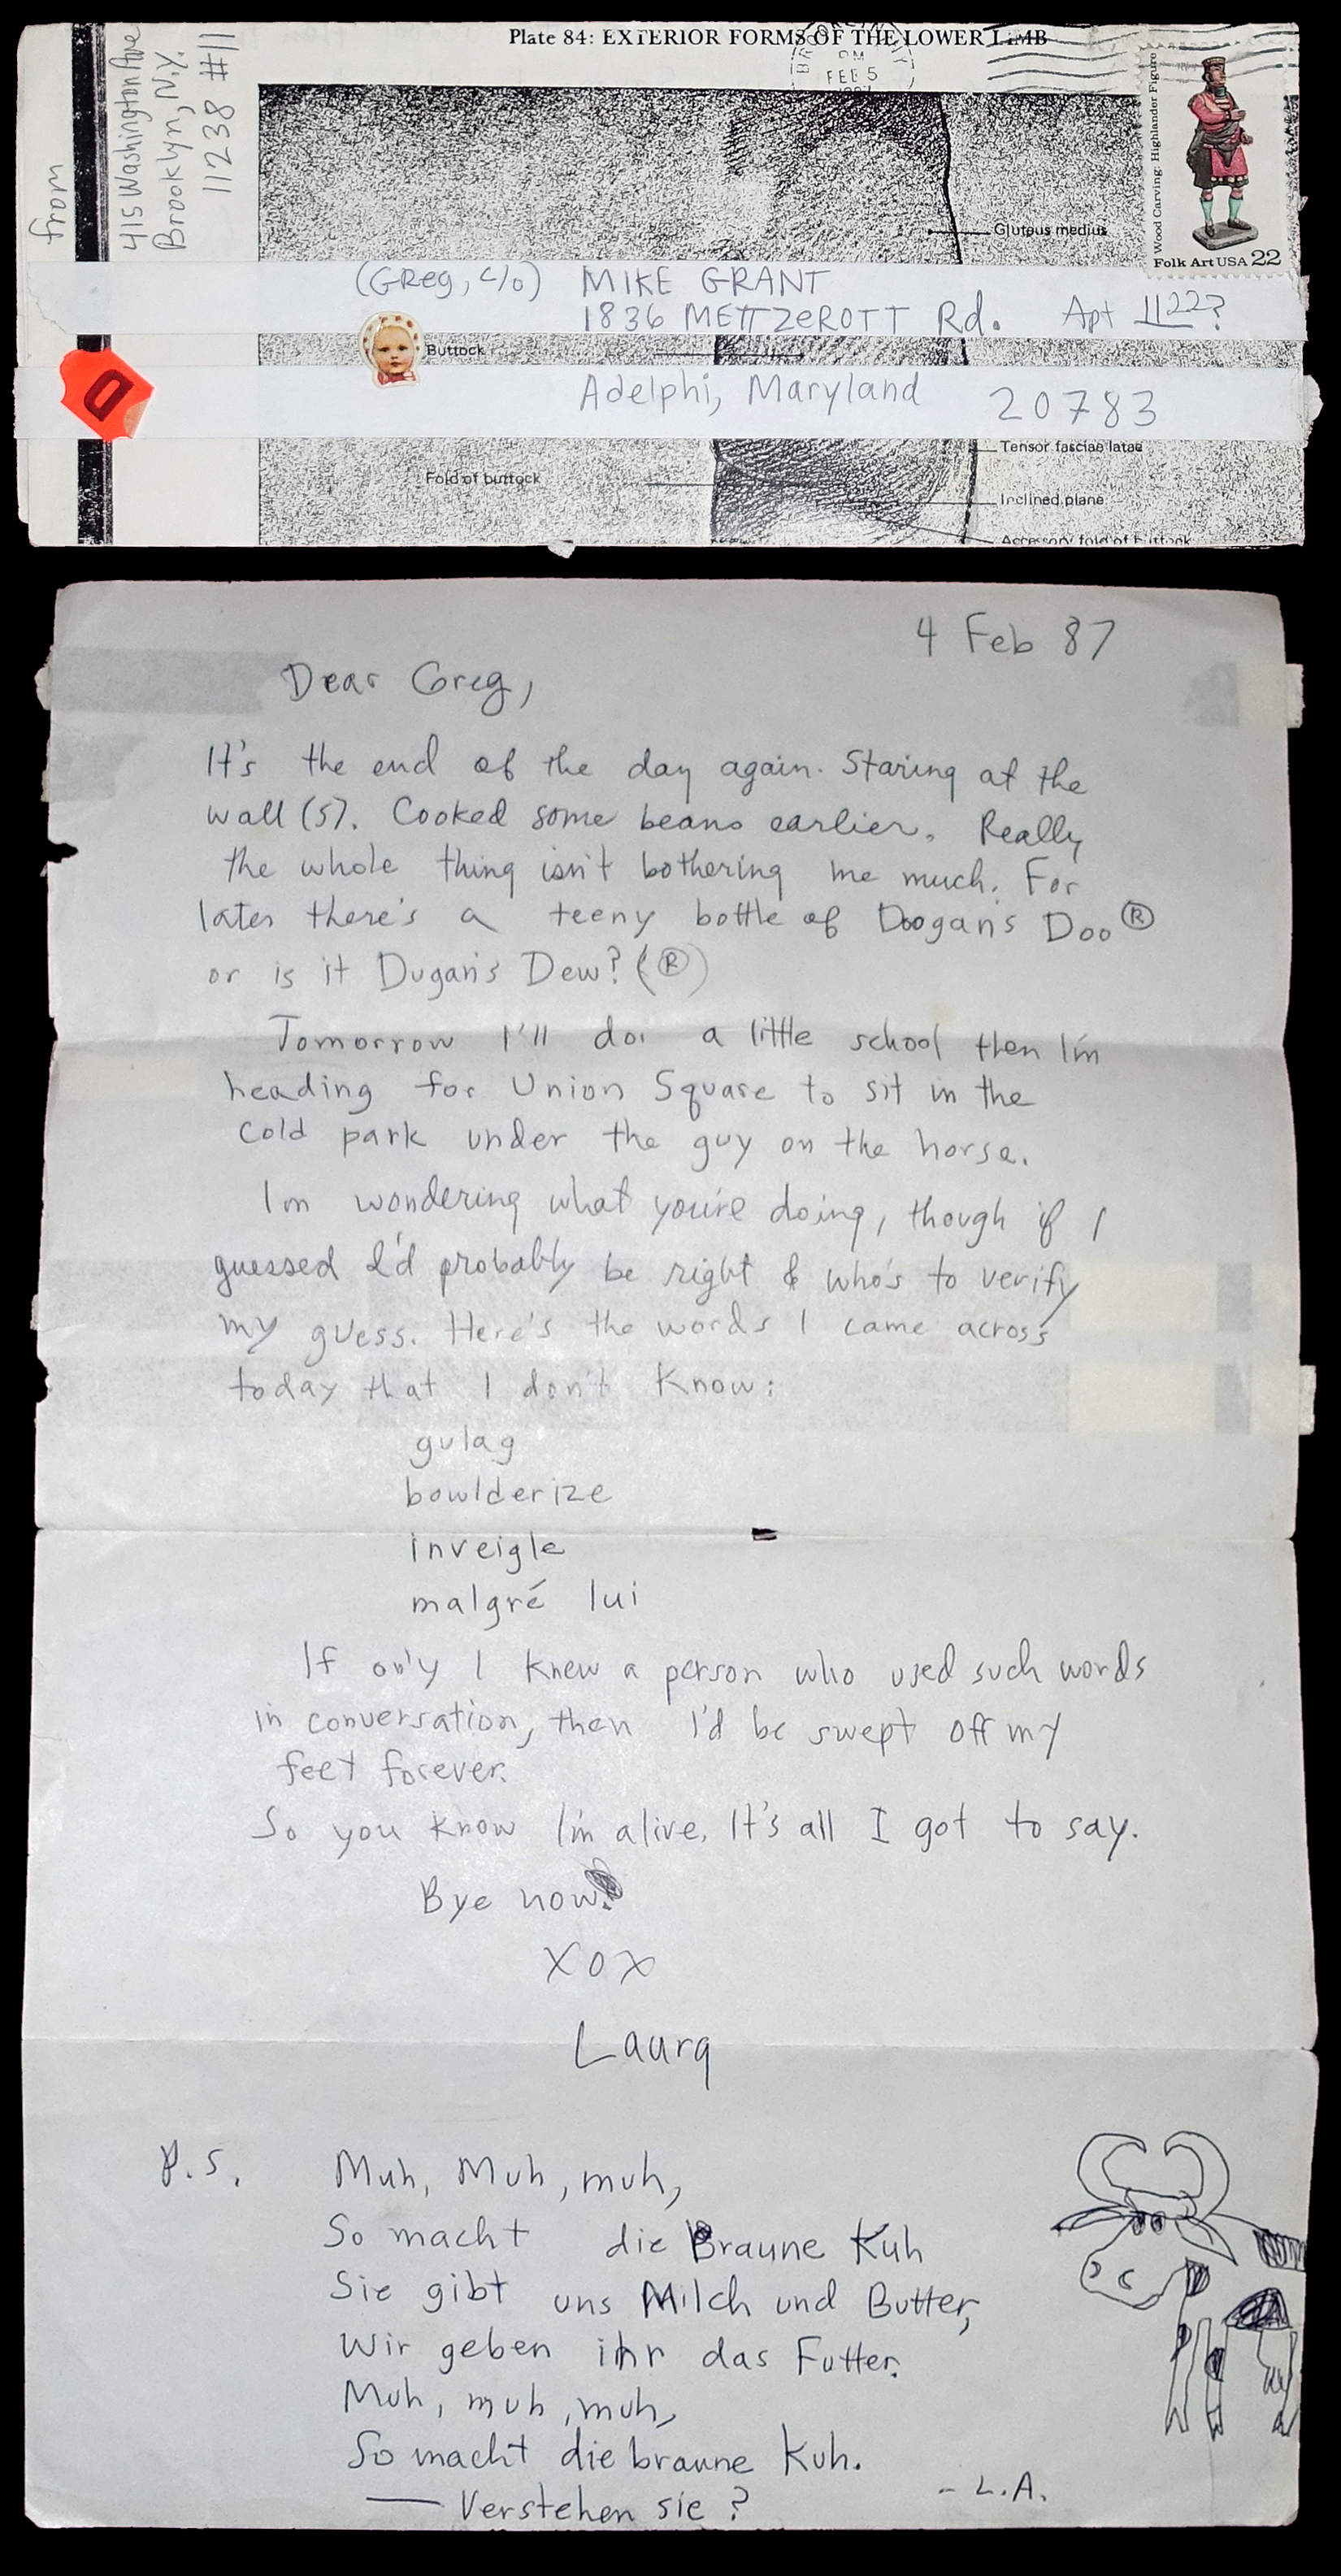 Plate 84: EXTERIOR FORMS OF THE LOWER LIMB
PM
FEB 5
from
415 Washington Ave
Brooklyn, N.Y.
11238 #11
Wood Carving: Highlander Figure
Folk Art USA 22
Gluteus medius
(Greg, c/o) MIKE GRANT
1836 METTZEROTT Rd. Apt 1122?
Buttock
D
Adelphi, Maryland 20783
Tensor fasciae latae
Fold of buttock
Inclined plane
Accessory fold of buttock
4 Feb 87
Dear Greg,
It's the end of the day again. Staring at the
wall (s). Cooked some beans earlier. Really
the whole thing isn't bothering me much. For
later there's a teeny bottle of Doogan's Doo ®
or is it Dugan's Dew? (®)
Tomorrow I'll do a little school then I'm
heading for Union Square to sit in the
cold park under the guy on the horse.
I'm wondering what you're doing, though if I
guessed I'd probably be right & who's to verify
my guess. Here's the words I came across
today that I don't know:
gulag
bowlderize
inveigle
malgré lui
If only I knew a person who used such words
in conversation, then I'd be swept off my
feet forever.
So you know I'm alive. It's all I got to say.
Bye now.
XOX
Laura
P.S. Muh, Muh, muh,
So macht die Braune Kuh
Sie gibt uns Milch und Butter,
Wir geben ihr das Futter.
Muh, muh, muh,
So macht die braune Kuh.
— Verstehen sie?
- L.A.